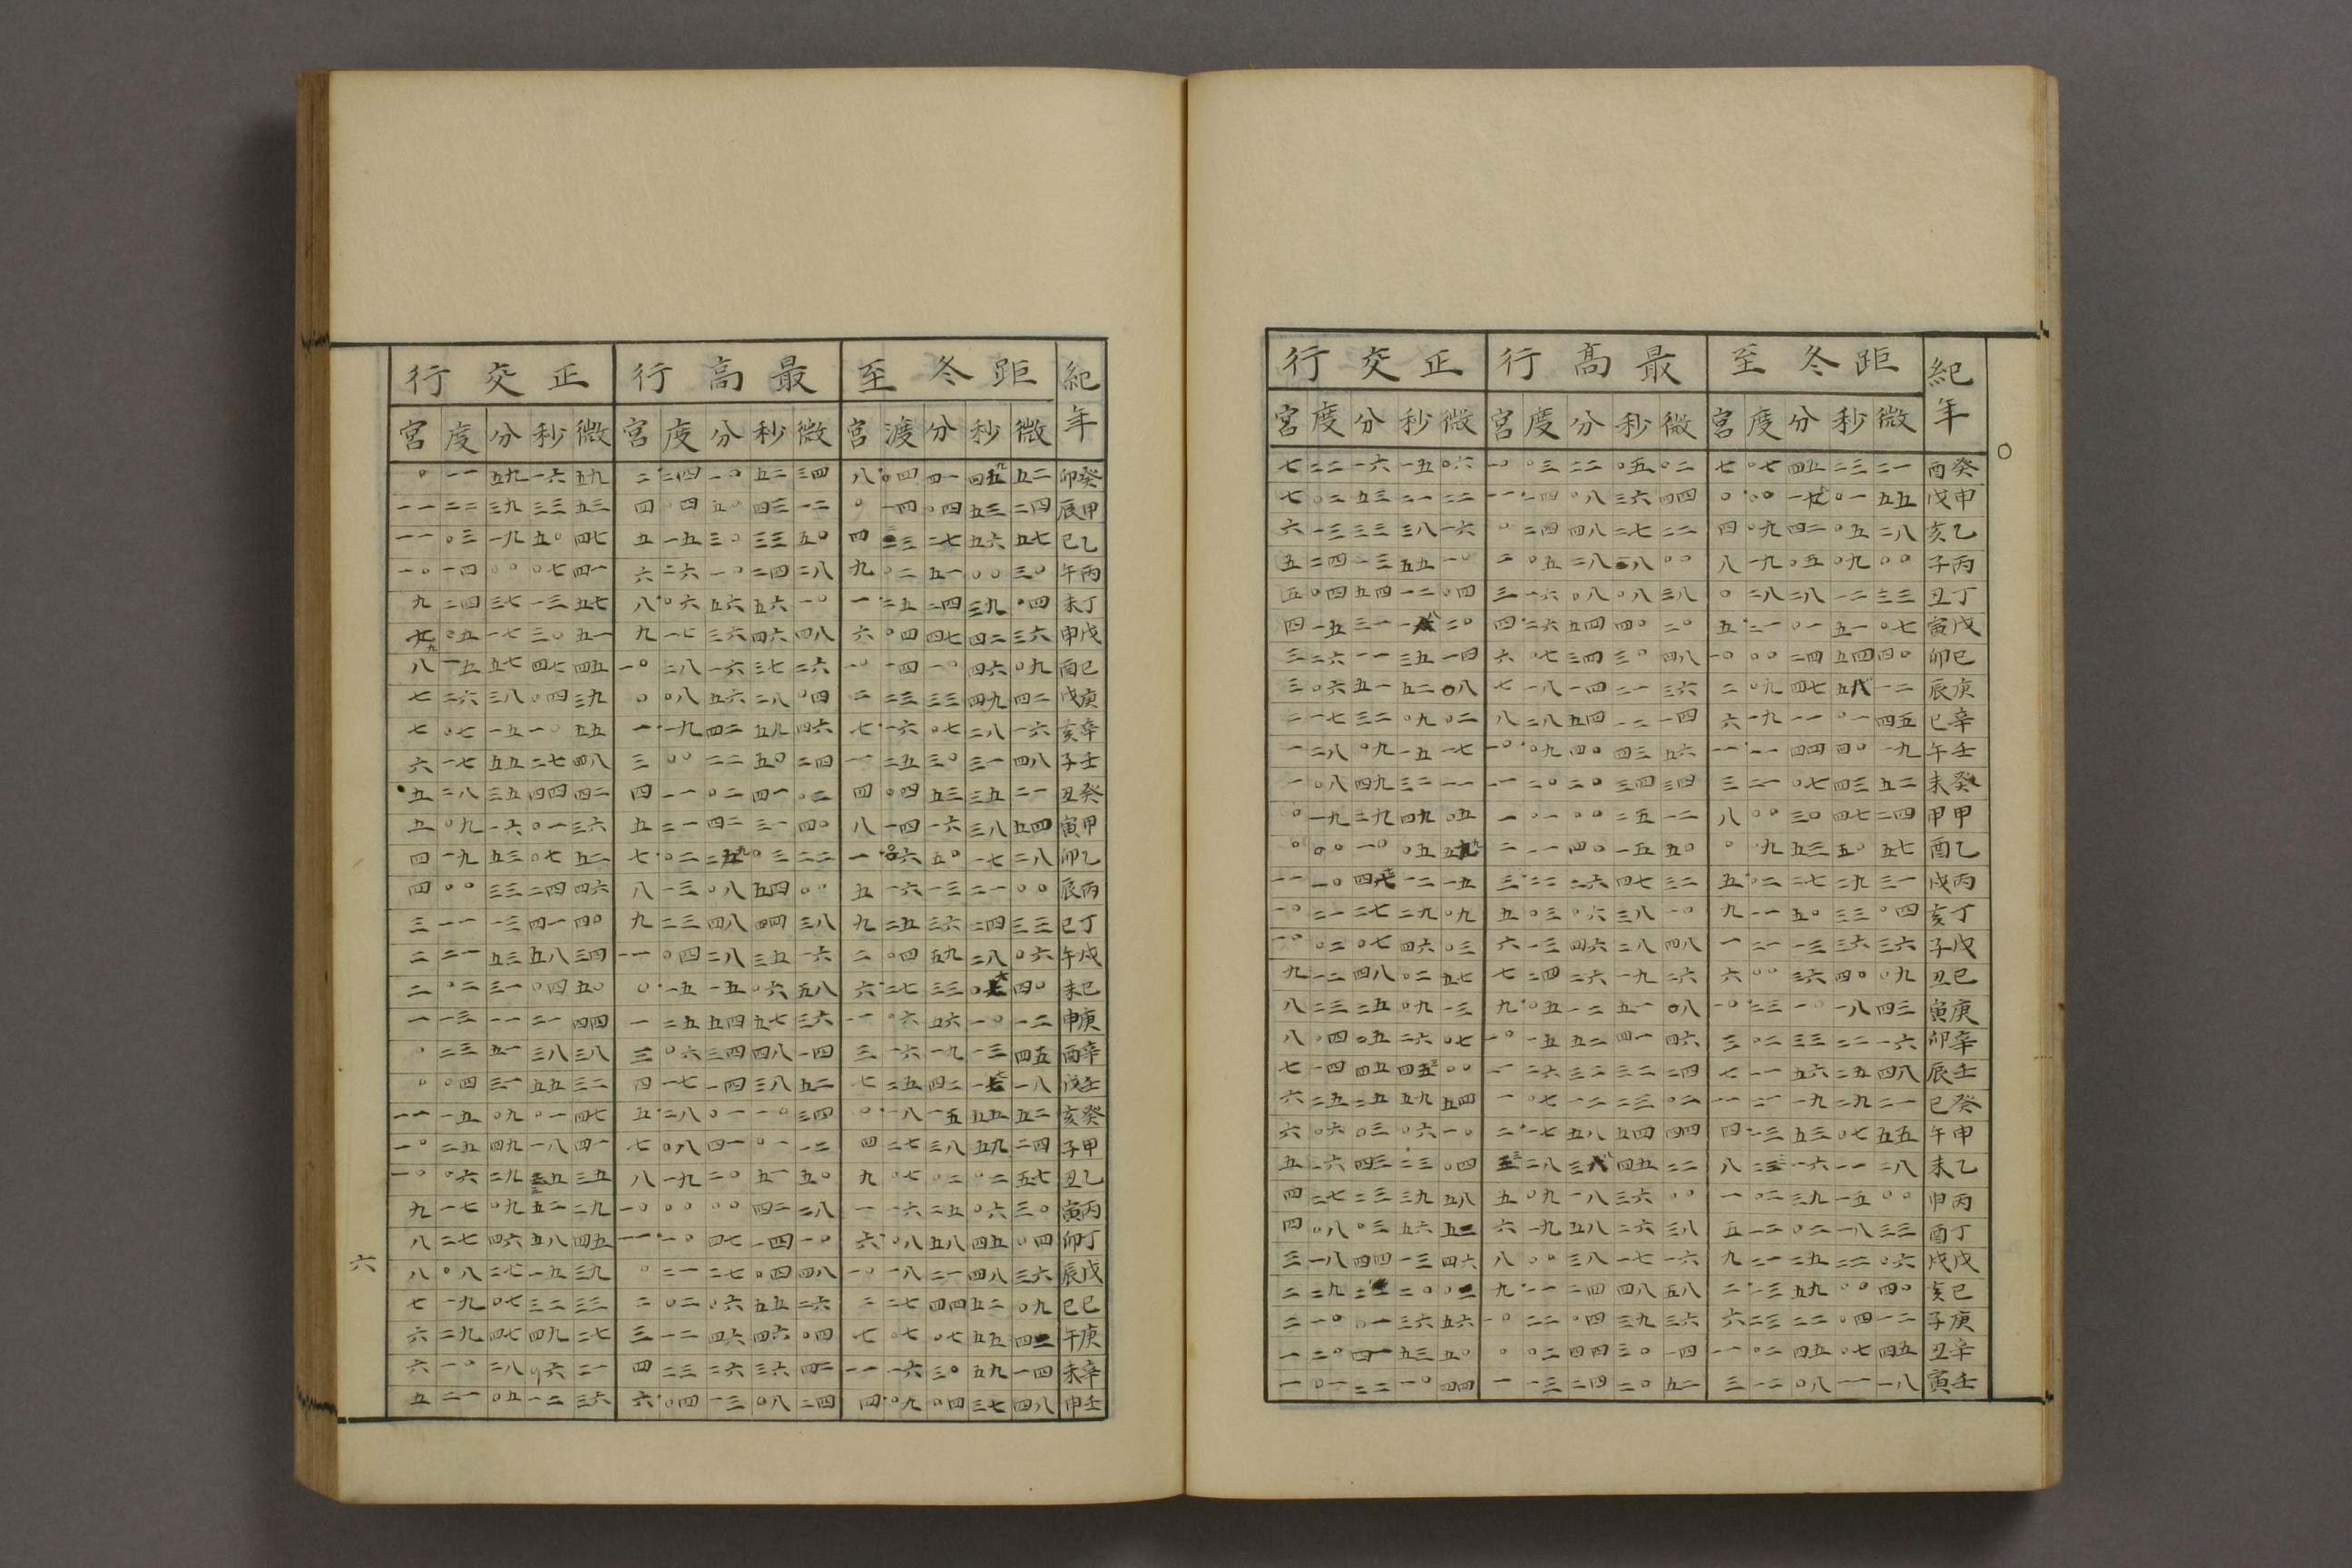 紀年 距冬至 最高行 正交行
宮 度 分 秒 微 宮 度 分 秒 微 宮 度 分 秒 微
癸酉 七 〇七 四五 二三 二一 一〇 〇三 二二 〇五 〇二 七 二二 一六 一五 〇六
甲戌 〇 〇〇 〇一 五五 一一 二四 〇八 三六 四四 七 〇二 五三 二一 二二
乙亥 四 〇九 四二 〇五 二八 〇 二四 四八 二七 二二 六 一三 三三 三八 一六
丙子 八 一九 〇五 〇九 〇〇 二 〇五 二八 一八 〇〇 五 二四 一三 五五 一〇
丁丑 〇 二八 二八 一二 三三 三 一六 〇八 〇八 三八 五 〇四 五四 一二 〇四
戊寅 五 二一 〇一 五一 〇七 四 二六 五四 四〇 二〇 四 一五 三一 一八 二〇
己卯 一〇 〇〇 二四 五四 四〇 六 〇七 三四 三〇 四八 三 二六 一一 三五 一四
庚辰 二 〇九 四七 五八 一二 七 一八 一四 二一 三六 三 〇六 五一 五二 〇八
辛巳 六 一九 一一 〇一 四五 八 二八 五四 一二 一四 二 一七 三二 〇九 〇二
壬午 一一 一一 四四 四〇 一九 一〇 〇九 四〇 四三 五六 一 二八 〇九 一五 一七
癸未 三 二一 〇七 四三 五二 一一 二〇 二〇 三四 三四 一 〇八 四九 三二 一一
甲申 八 〇〇 三〇 四七 二四 一 〇一 〇〇 二五 一二 〇 一九 二九 四九 〇五
乙酉 〇 〇九 五三 五〇 五七 二 一一 四〇 一五 五〇 〇 〇〇 一〇 〇五 五九
丙戌 五 〇二 二七 二九 三一 三 二二 二六 四七 三二 一一 一〇 四七 一二 一五
丁亥 九 一一 五〇 三三 〇四 五 〇三 〇六 三八 一〇 一〇 二一 二七 二九 〇九
戊子 一 二一 一三 三六 三六 六 一三 四六 二八 四八 一〇 〇二 〇七 四六 〇三
己丑 六 〇〇 三六 四〇 〇九 七 二四 二六 一九 二六 九 一二 四八 〇二 五七
庚寅 一〇 二三 一〇 一八 四三 九 〇五 一二 五一 〇八 八 二三 二五 〇九 一三
辛卯 三 〇二 三三 二二 一六 一〇 一五 五二 四一 四六 八 〇四 〇五 二六 〇七
壬辰 七 一一 五六 二五 四八 一一 二六 三二 三二 二四 七 一四 四五 四三 〇〇
癸巳 一一 二一 一九 二九 二一 一 〇七 一二 二三 〇二 六 二五 二五 五九 五四
甲午 四 一三 五三 〇七 五五 二 一七 五八 五四 四四 六 〇六 〇三 〇六 一〇
乙未 八 二三 一六 一一 二八 三 二八 三八 四五 二二 五 一六 四三 二三 〇四
丙申 一 〇二 三九 一五 〇〇 五 〇九 一八 三六 〇〇 四 二七 二三 三九 五八
丁酉 五 一二 〇二 一八 三三 六 一九 五八 二六 三八 四 〇八 〇三 五六 五二
戊戌 九 二一 二五 二二 〇六 八 〇〇 三八 一七 一六 三 一八 四四 一三 四六
己亥 二 一三 五九 〇〇 四〇 九 一一 二四 四八 五八 二 二九 二〇 〇二
庚子 六 二三 二二 〇四 一二 一〇 二二 〇四 三九 三六 二 一〇 〇一 三六 五六
辛丑 一一 〇二 四五 〇七 四五 〇 〇二 四四 三〇 一四 一 二〇 四一 五三 五〇
壬寅 三 一二 〇八 一一 一八 一 一三 二四 二〇 五二 一 〇一 二二 一〇 四四
紀年 距冬至 最高行 正交行
宮 渡 分 秒 微 宮 度 分 秒 微 宮 度 分 秒 微
癸卯 八 〇四 四一 四九 五二 二 二四 一〇 五二 三四 〇 一一 五九 一六 五九
甲辰 〇 一四 〇四 五三 二四 四 〇四 五〇 四三 一二 一一 二二 三九 三三 五三
乙巳 四 二三 二七 五六 五七 五 一五 三〇 三三 五〇 一一 〇三 一九 五〇 四七
丙午 九 〇二 五一 〇〇 三〇 六 二六 一〇 二四 二八 一〇 一四 〇〇 〇七 四一
丁未 一 二五 二四 三九 〇四 八 〇六 五六 五六 一〇 九 二四 三七 一三 五七
戊申 六 〇四 四七 四二 三六 九 一七 三六 四六 四八 九 〇五 一七 三〇 五一
己酉 一〇 一四 一〇 四六 〇九 一〇 二八 一六 三七 二六 八 一五 五七 四七 四五
庚戌 二 二三 三三 四九 四二 〇 〇八 五六 二八 〇四 七 二六 三八 〇四 三九
辛亥 七 一六 〇七 二八 一六 一 一九 四二 五九 四六 七 〇七 一五 一〇 五五
壬子 一一 二五 三〇 三一 四八 三 〇〇 二二 五〇 二四 六 一七 五五 二七 四八
癸丑 四 〇四 五三 三五 二一 四 一一 〇二 四一 〇二 五 二八 三五 四四 四二
甲寅 八 一四 一六 三八 五四 五 二一 四二 三一 四〇 五 〇九 一六 〇一 三六
乙卯 一 〇六 五〇 一七 二八 七 〇二 二九 〇三 二二 四 一九 五三 〇七 五二
丙辰 五 一六 一三 二一 〇〇 八 一三 〇八 五四 〇〇 四 〇〇 三三 二四 四六
丁巳 九 二五 三六 二四 三三 九 二三 四八 四四 三八 三 一一 一三 四一 四〇
戊午 二 〇四 五九 二八 〇六 一一 〇四 二八 三五 一六 二 二一 五三 五八 三四
己未 六 二七 三三 〇六 四〇 〇 一五 一五 〇六 五八 二 〇二 三一 〇四 五〇
庚申 一一 〇六 五六 一〇 一二 一 二五 五四 五七 三六 一 一三 一一 二一 四四
辛酉 三 一六 一九 一三 四五 三 〇六 三四 四八 一四 〇 二三 五一 三八 三八
壬戌 七 二五 四二 一七 一八 四 一七 一四 三八 五二 〇 〇四 三一 五五 三二
癸亥 〇 一八 一五 五五 五二 五 二八 〇一 一〇 三四 一一 一五 〇九 〇一 四七
甲子 四 二七 三八 五九 二四 七 〇八 四一 〇一 一二 一〇 二五 四九 一八 四一
乙丑 九 〇七 〇二 〇二 五七 八 一九 二〇 五一 五〇 一〇 〇六 二九 三五 三五
丙寅 一 一六 二五 〇六 三〇 一〇 〇〇 〇〇 四二 二八 九 一七 〇九 五二 二九
丁卯 六 〇八 五八 四五 〇四 一一 一〇 四七 一四 一〇 八 二七 四六 五八 四五
戊辰 一〇 一八 二一 四八 三六 〇 二一 二七 〇四 四八 八 〇八 二七 一五 三九
己巳 二 二七 四四 五二 〇九 二 〇二 〇六 五五 二六 七 一九 〇七 三二 三三
庚午 七 〇七 〇七 五五 四二 三 一二 四六 四六 〇四 六 二九 四七 四九 二七
辛未 一一 一六 三〇 五九 一四 四 二三 二六 三六 四二 六 一〇 二八 〇六 二一
壬申 四 〇九 〇四 三七 四八 六 〇四 一三 〇八 二四 五 二一 〇五 一二 三六
六